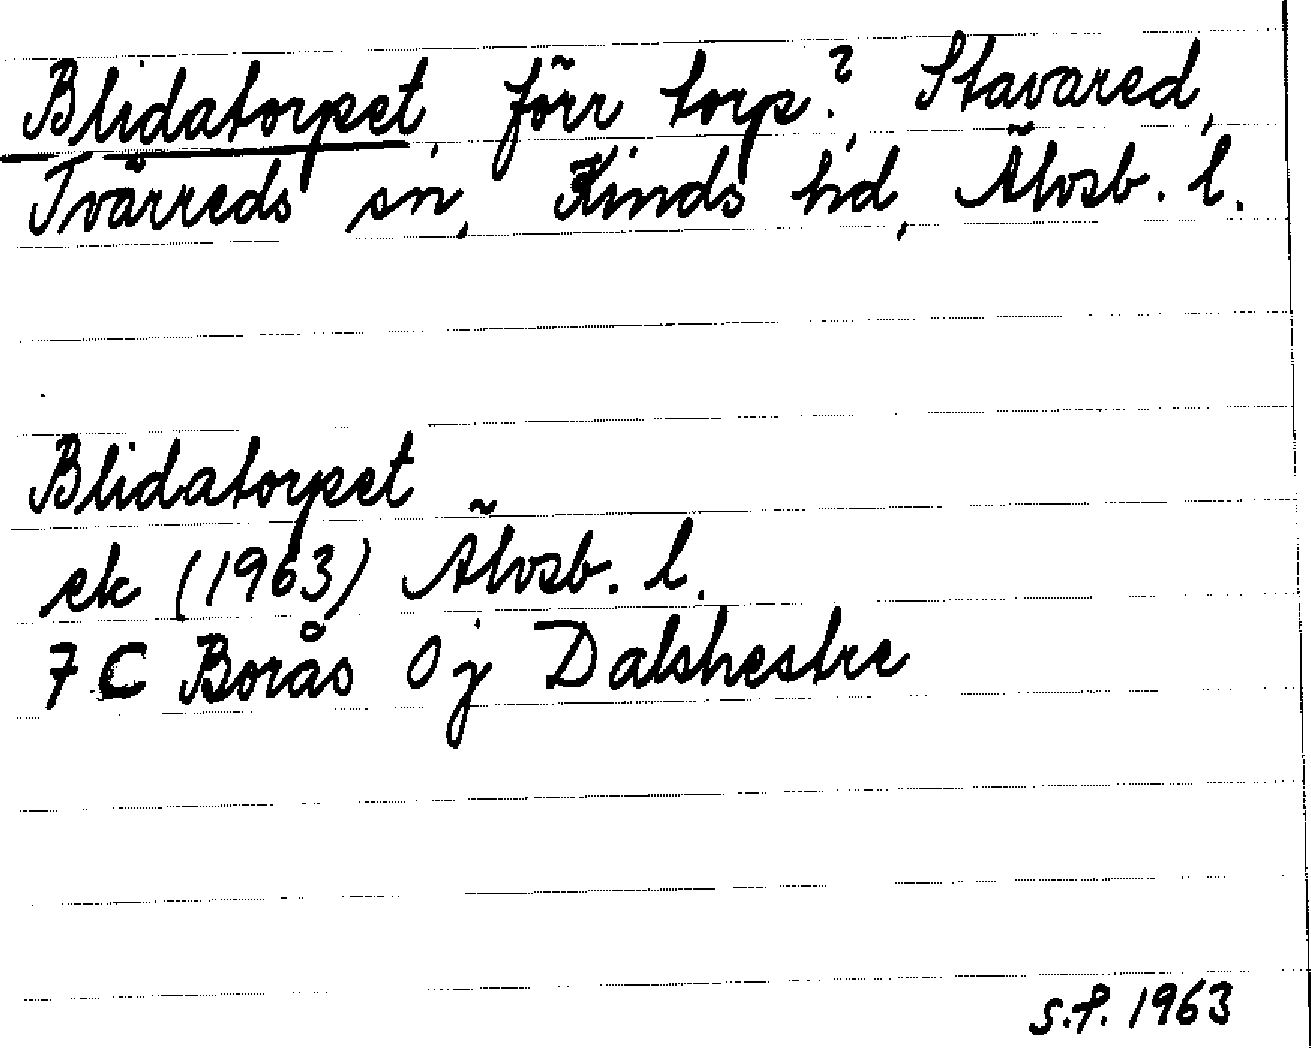 Blidatorpet, förr torp?, Stavared,
Tvärreds sn, Kinds hd, Älvsb. l.
Blidatorpet
ek (1963) Älvsb. l.
7 C Borås 0 j Dalshestre
S.F. 1963